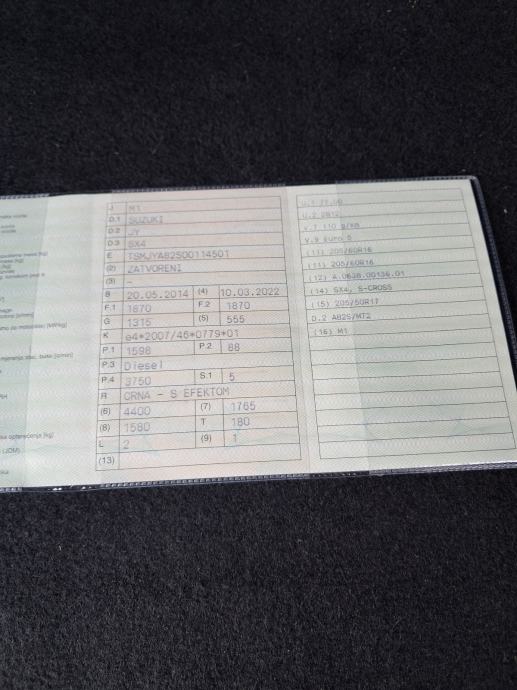 J M1
D.1 SUZUKI
D.2 JY
D.3 SX4
E TSMJYA82S00114501
(2) ZATVORENI
(3) –
B 20.05.2014 (4) 10.03.2022
F.1 1870 F.2 1870
G 1315 (5) 555
K e4*2007/46*0779*01
P.1 1598 P.2 88
P.3 Diesel
P.4 3750 S.1 5
R CRNA – S EFEKTOM
(6) 4400 (7) 1765
(8) 1580 T 180
L 2 (9) 1
(13)
U.2 2812
V.7 110 g/km
V.9 Euro 5
(11) 205/60R16
(11) 205/60R16
(12) A.0638.00136.01
(14) SX4, S-CROSS
(15) 205/50R17
D.2 A82S/MT2
(16) M1